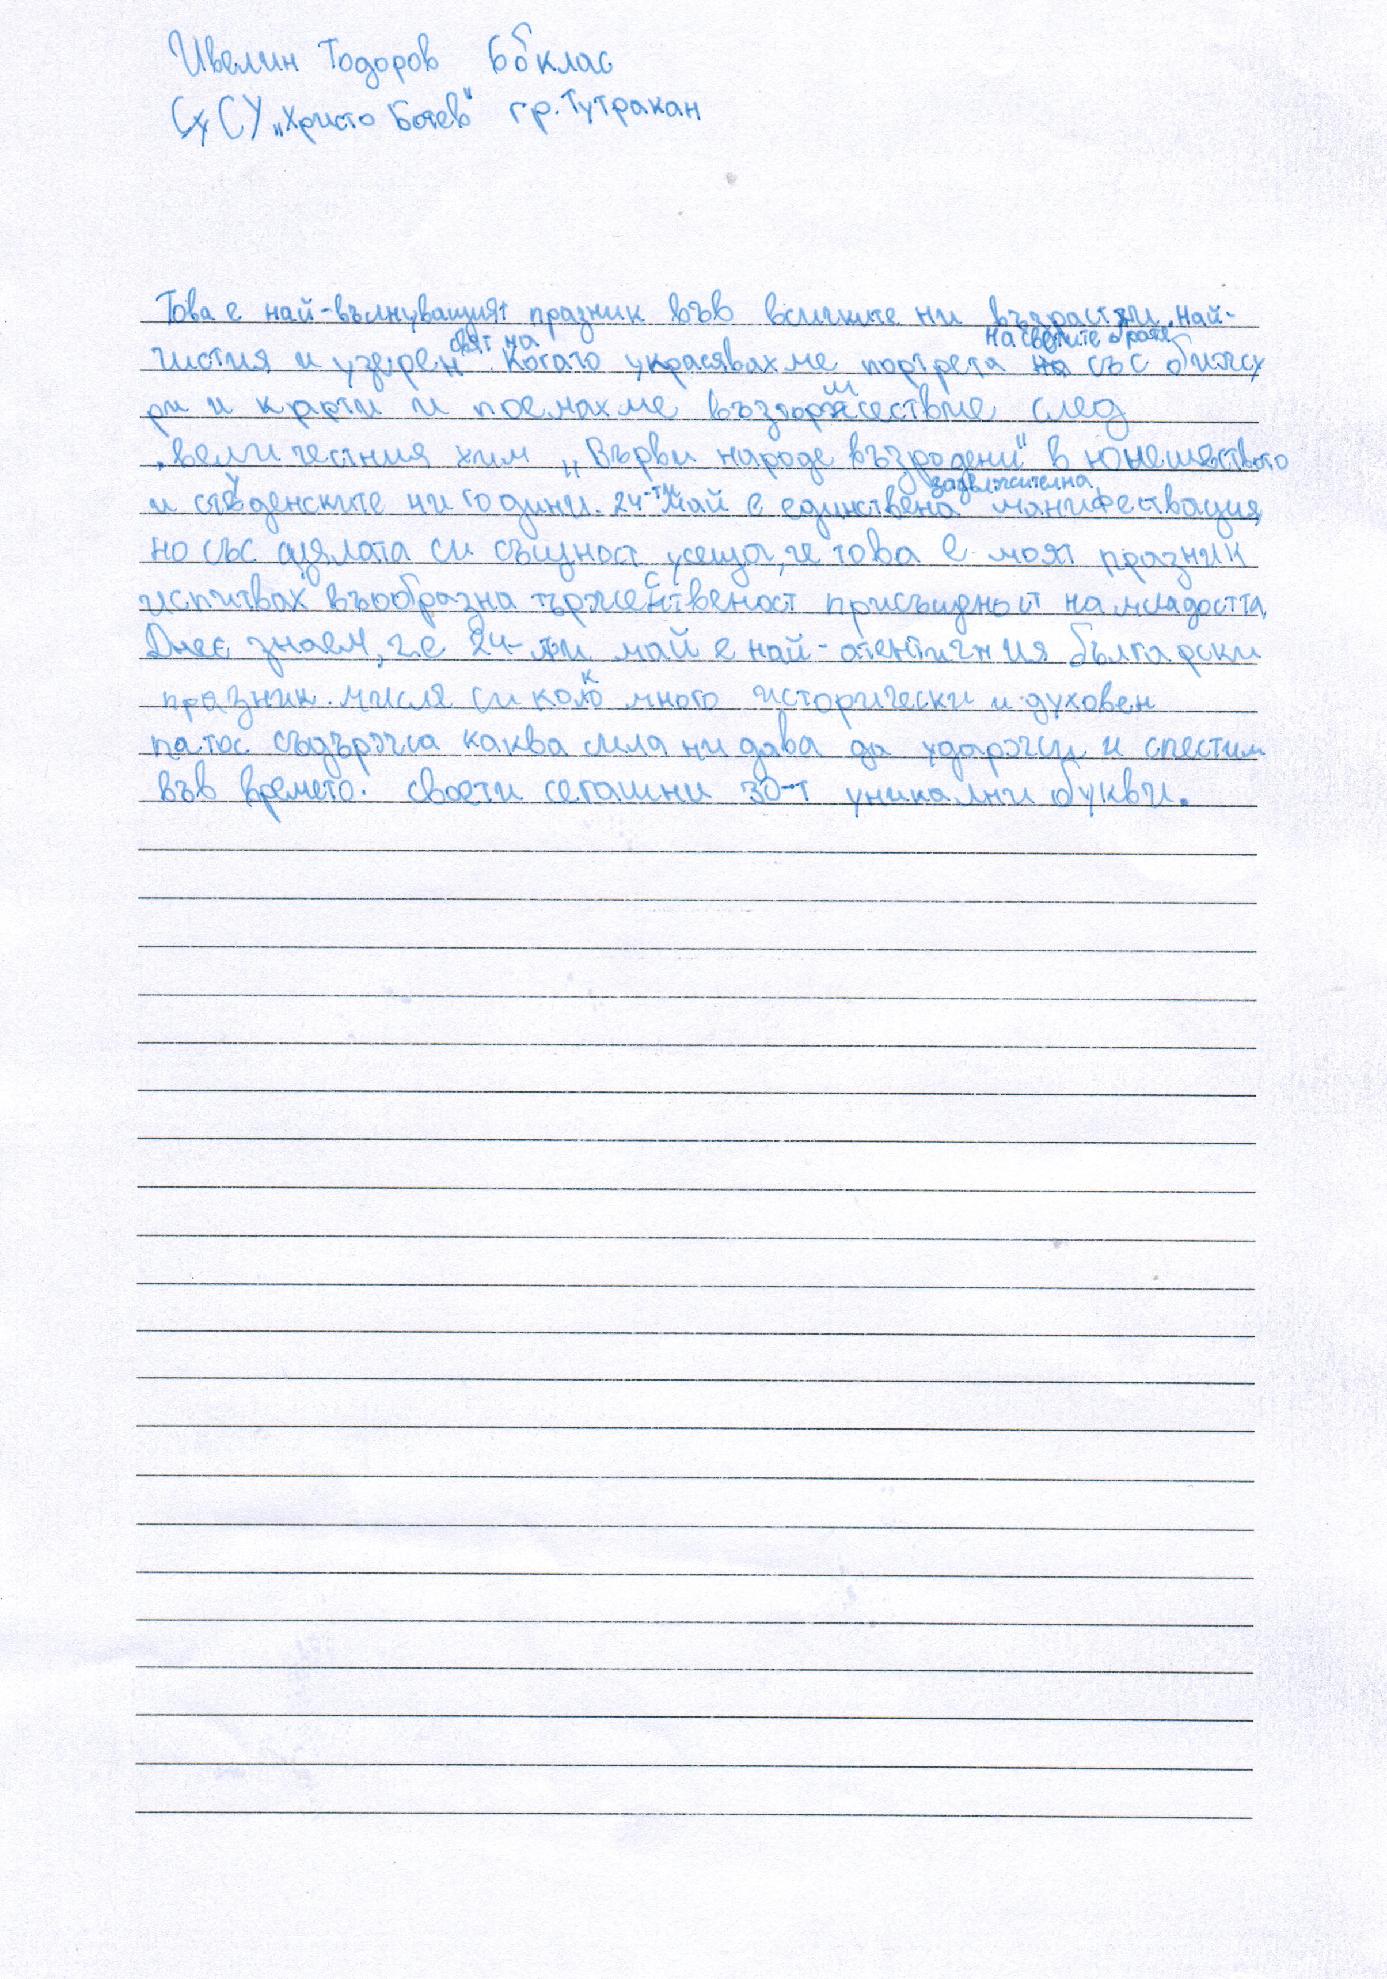 Ивелин Тодоров 6б клас
СУ „Христо Ботев" гр. Тутракан
Това е най-вълнуващият празник във всичките ни възрасти. Най-
чистия и узерен свят на Когато украсявахме портрета на светите братя със бижу
ри и крти и поемахме възторжествие след
величестния хим „Върви народе възродени" в юношеството
и студенските ни години. 24-ти май е единствена задължителна манифествация,
но със цялата си същност усещах, че това е моят празник
испитвах въобразна тържественост присъщност на младостта,
Днес знаем, че 24-ти май е най-отентичния български
празник. мисля си колко много исторически и духовен
патос съдържа каква сила ни дава да ударжи и спестим
във времето. своети сегашни 30-т уникални букви.